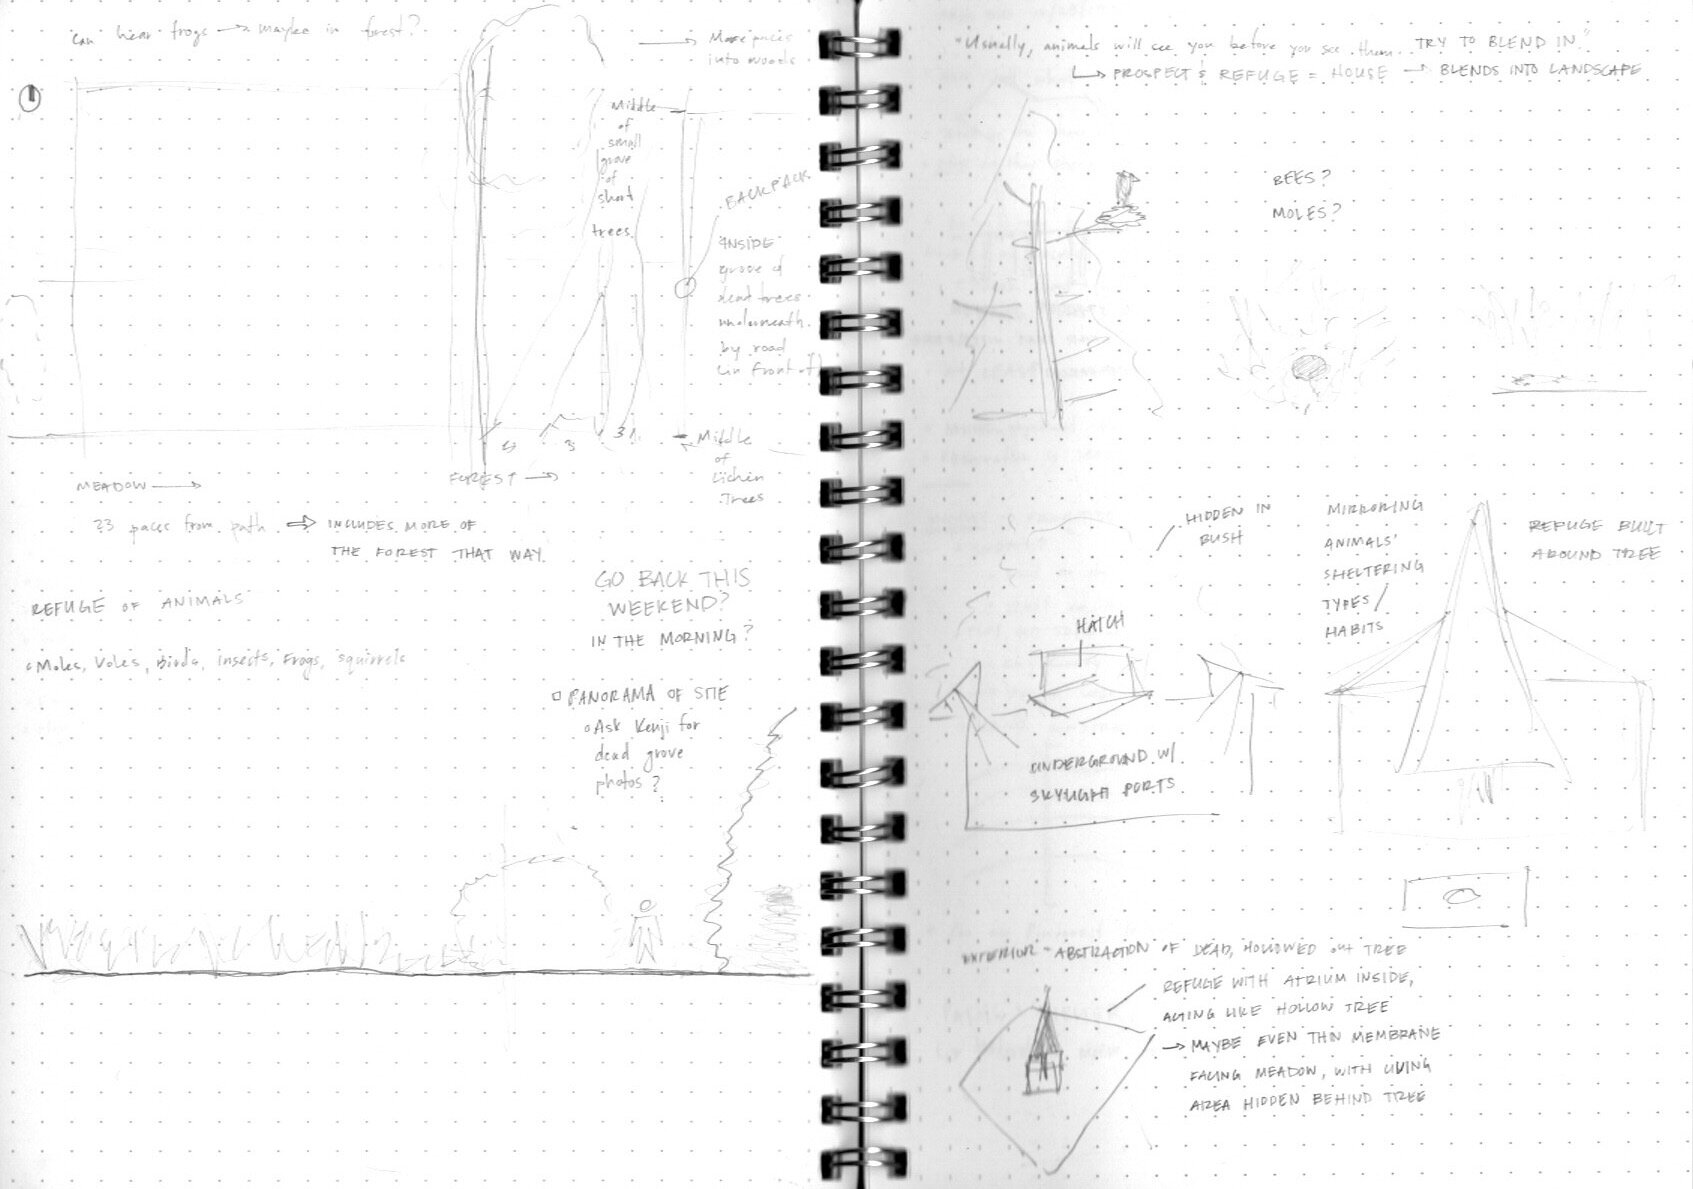 can hear frogs → maybe in forest?
More paces
into woods
Middle
of
small
grove
of
short
trees
BACKPACK
INSIDE
grove of
dead trees
underneath
by road
(in front of)
4 3 3
Middle
of
Lichen
Trees
MEADOW →
FOREST →
23 paces from path ⇒ INCLUDES MORE OF
THE FOREST THAT WAY.
GO BACK THIS
WEEKEND?
IN THE MORNING?
REFUGE OF ANIMALS
Moles, Voles, Birds, insects, Frogs, squirrels
PANORAMA OF SITE
Ask Kenji for
dead grove
photos?
"Usually, animals will see you before you see them. TRY TO BLEND IN."
↳ PROSPECT & REFUGE = HOUSE → BLENDS INTO LANDSCAPE
BEES?
MOLES?
HIDDEN IN
BUSH
HATCH
UNDERGROUND W/
SKYLIGHT PORTS
MIRRORING
ANIMALS'
SHELTERING
TYPES/
HABITS
REFUGE BUILT
AROUND TREE
EXTERIOR - ABSTRACTION OF DEAD, HOLLOWED OUT TREE
REFUGE WITH ATRIUM INSIDE,
ACTING LIKE HOLLOW TREE
→ MAYBE EVEN THIN MEMBRANE
FACING MEADOW, WITH LIVING
AREA HIDDEN BEHIND TREE